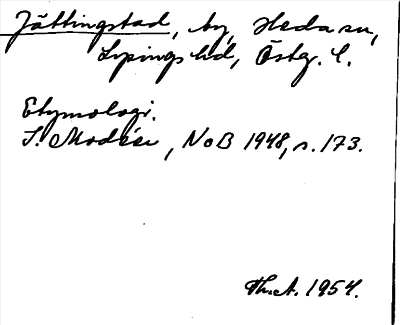 Jättingstad, by, Heda sn,
Lysings hd, Östg. l.
Etymologi.
I. Modéer, NoB 1948, s. 173.
Th.A. 1954.